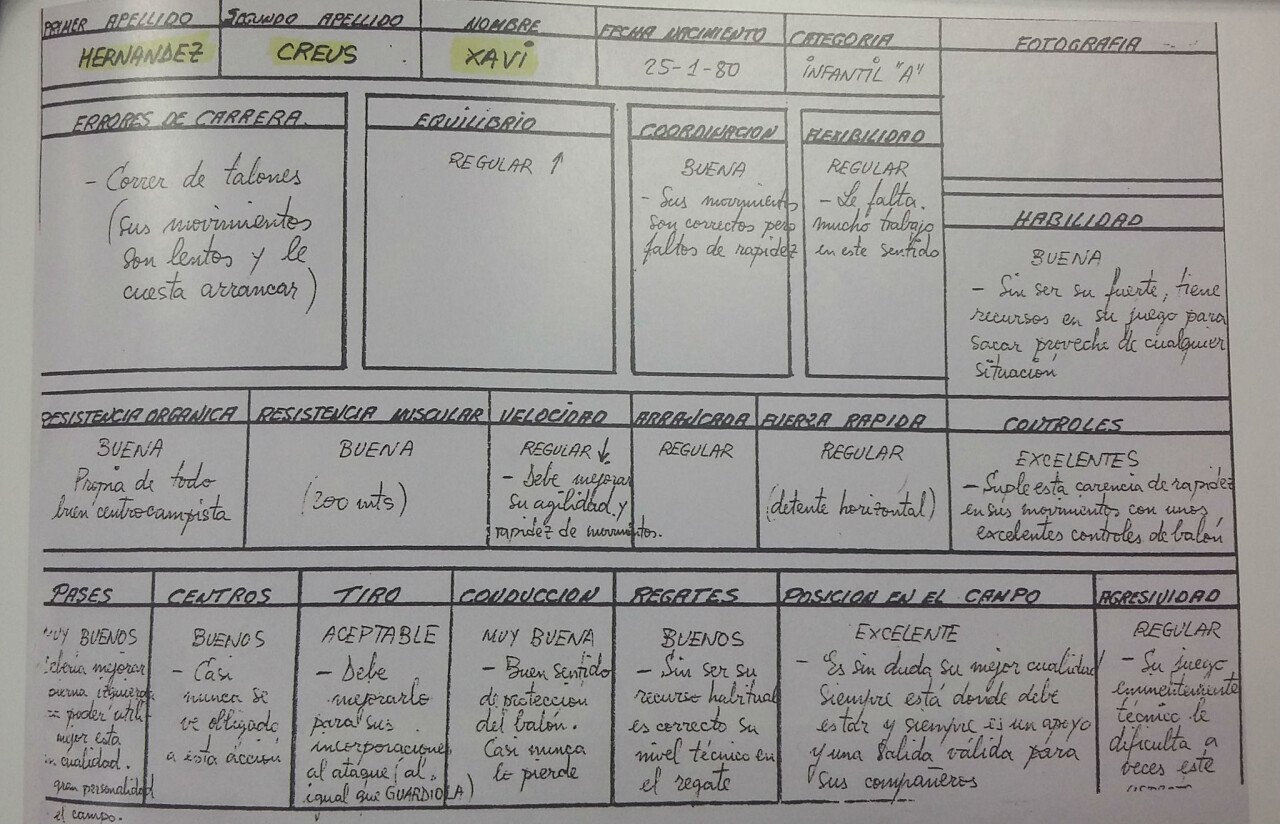 PRIMER APELLIDO
HERNANDEZ
SEGUNDO APELLIDO
CREUS
NOMBRE
XAVI
FECHA NACIMIENTO
25-1-80
CATEGORIA
INFANTIL "A"
FOTOGRAFIA
ERRORES DE CARRERA
- Correr de talones
(sus movimientos
son lentos y le
cuesta arrancar)
EQUILIBRIO
REGULAR ↑
COORDINACION
BUENA
- Sus movimientos
son correctos pero
faltos de rapidez
FLEXIBILIDAD
REGULAR
- Le falta
mucho trabajo
en este sentido
HABILIDAD
BUENA
- Sin ser su fuerte, tiene
recursos en su juego para
sacar provecho de cualquier
situación
RESISTENCIA ORGANICA
BUENA
Propia de todo
buen centrocampista
RESISTENCIA MUSCULAR
BUENA
(200 mts)
VELOCIDAD
REGULAR ↓
- Debe mejorar
su agilidad y
rapidez de movimientos.
ARRANCADA
REGULAR
FUERZA RAPIDA
REGULAR
(detente horizontal)
CONTROLES
EXCELENTES
- Suple esta carencia de rapidez
en sus movimientos con unos
excelentes controles de balón
PASES
MUY BUENOS
Debería mejorar
pierna izquierda
poder utili-
mejor esta
cualidad.
gran personalidad
el campo.
CENTROS
BUENOS
- Casi
nunca se
ve obligado
a esta acción
TIRO
ACEPTABLE
- Debe
mejorarlo
para sus
incorporaciones
al ataque (al
igual que GUARDIOLA)
CONDUCCION
MUY BUENA
- Buen sentido
de protección
del balón.
Casi nunca
lo pierde
REGATES
BUENOS
- Sin ser su
recurso habitual
es correcto su
nivel técnico en
el regate
POSICION EN EL CAMPO
EXCELENTE
- Es sin duda su mejor cualidad
Siempre está donde debe
estar y siempre es un apoyo
y una salida valida para
sus compañeros
AGRESIVIDAD
REGULAR
- Su juego
eminentemente
técnico le
dificulta a
veces este